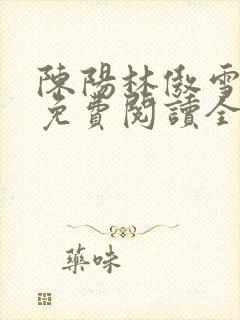 陳陽林傲雪
免費閱讀全
藥味